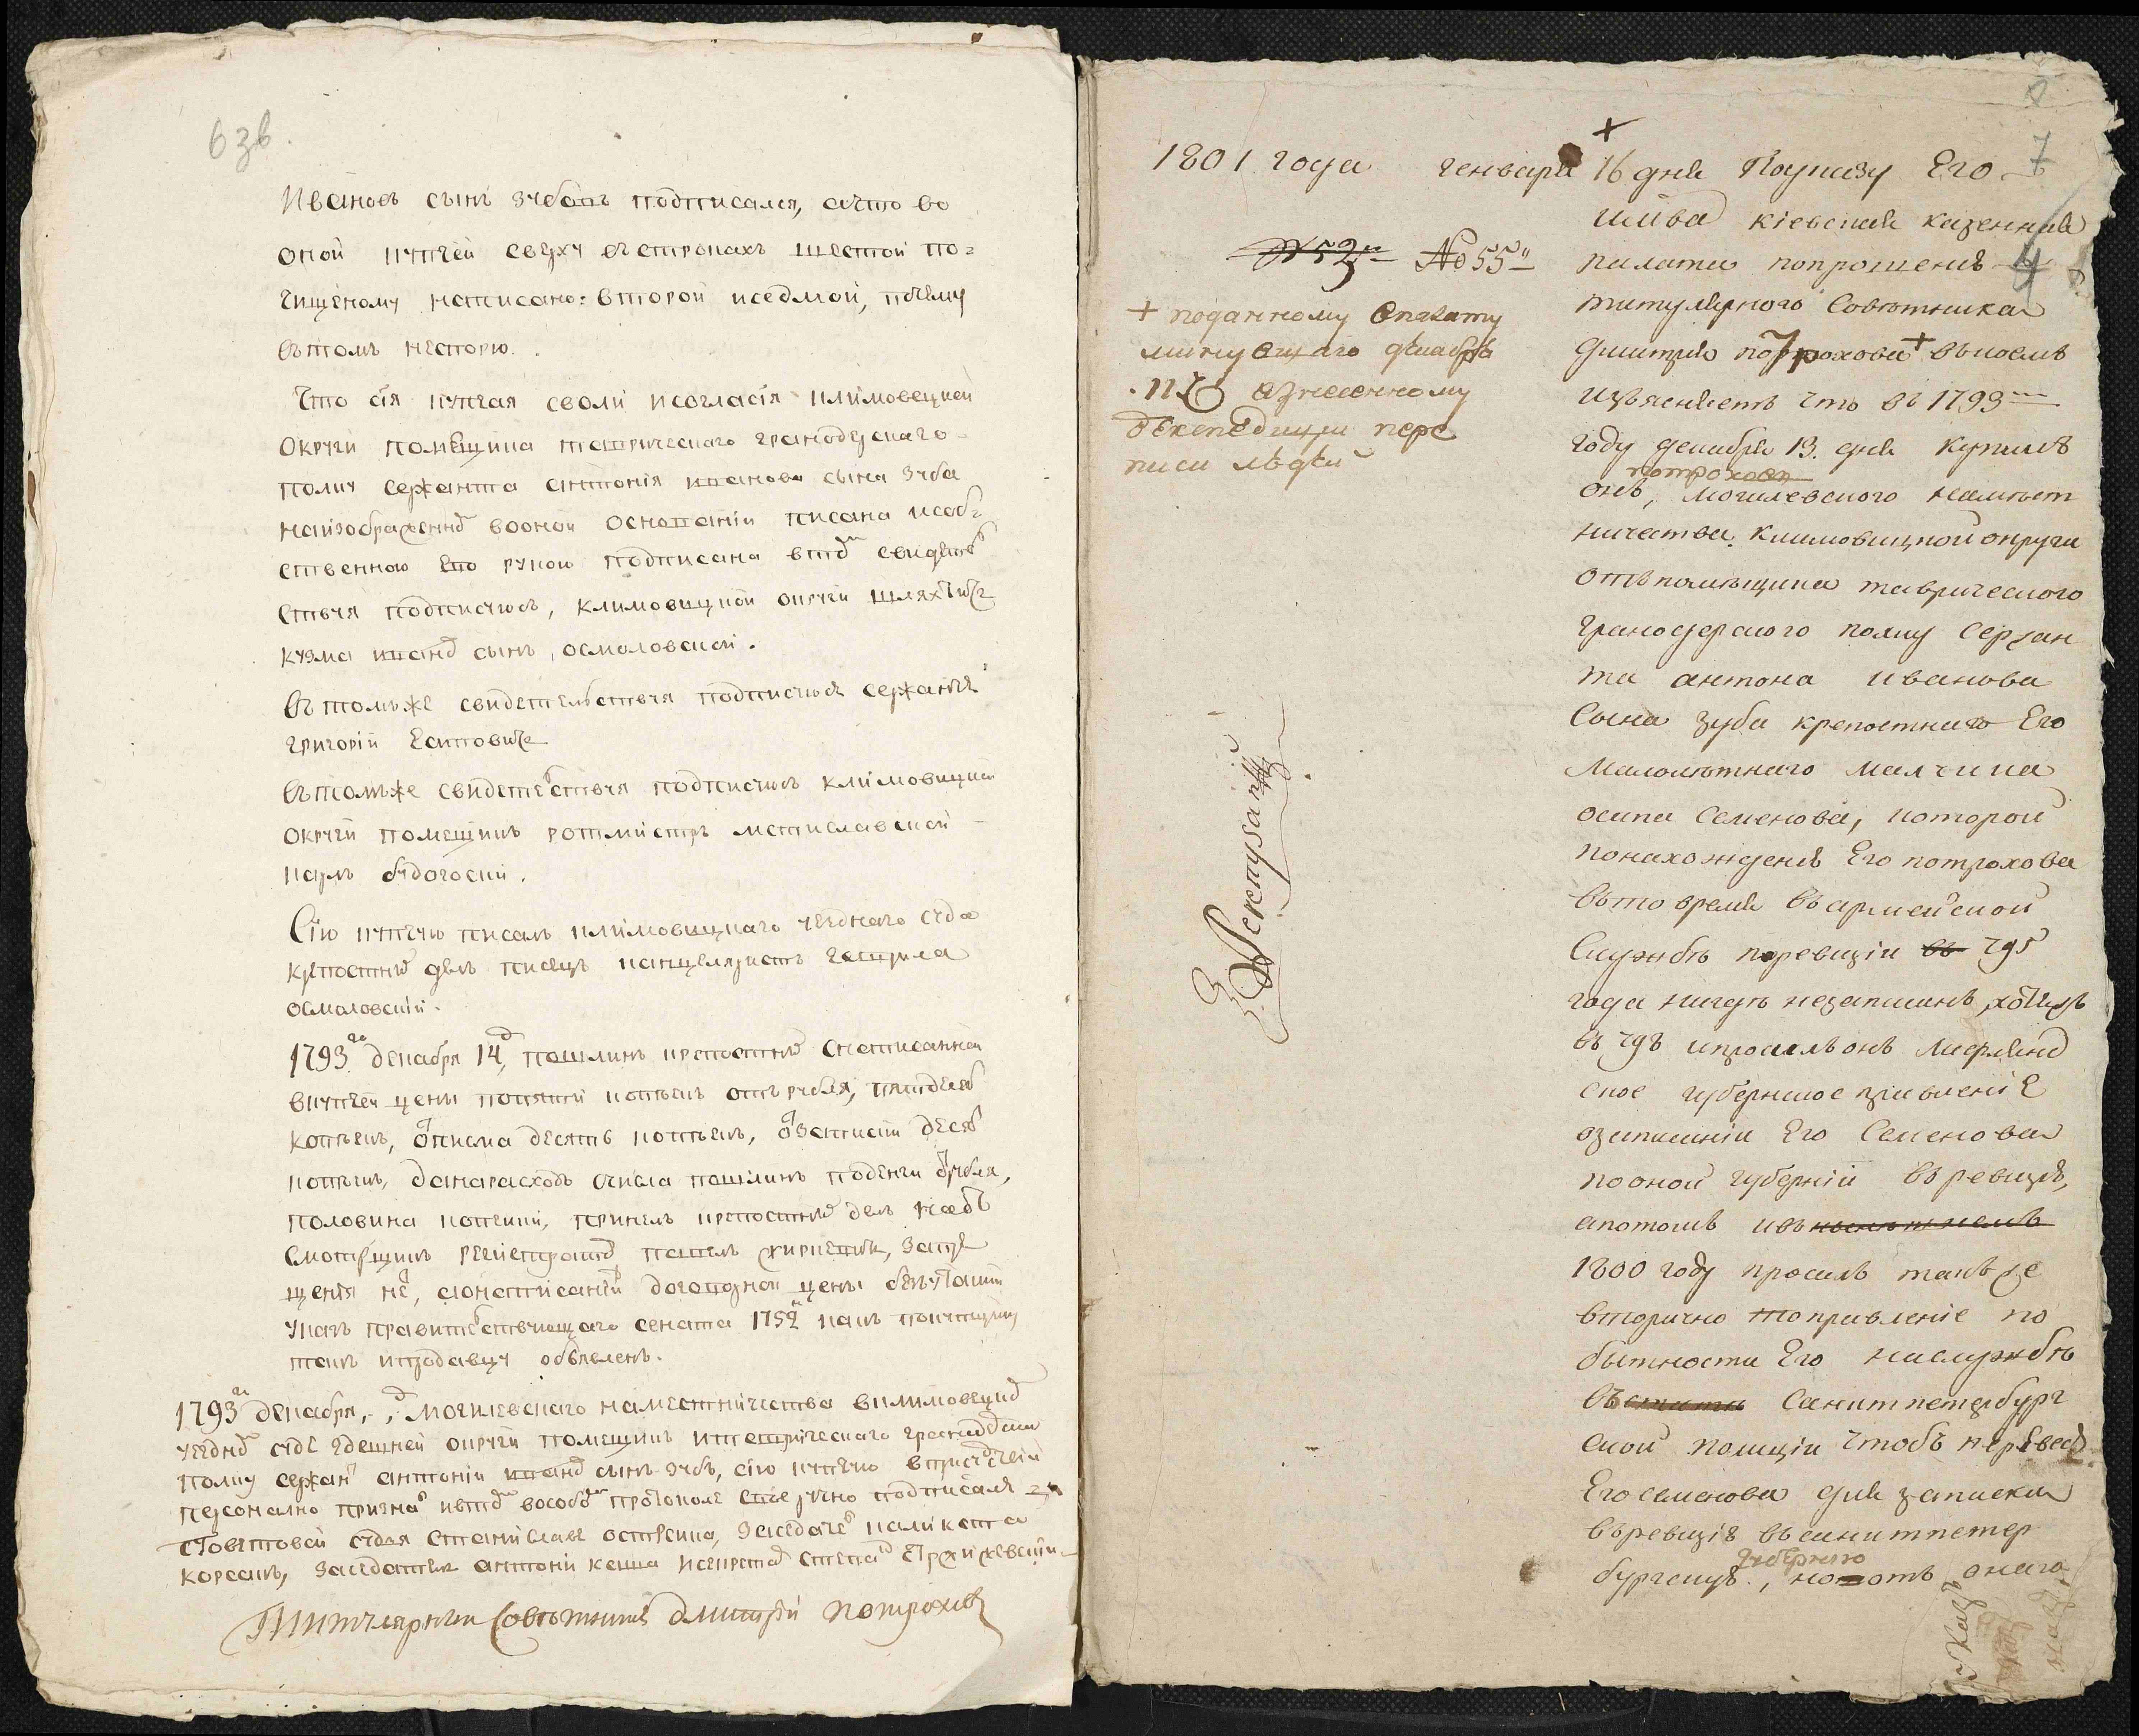 6 зв.
Ивановъ сынъ Зубомъ подписался, а что во
оной купчей сверху въ строкахъ шестой по
чищеному написано: второй и седмой, почему
въ томъ нѣспорю.
Что сiя купчая сволѝ и согласiя климовецкой
округи помѣщика таврическаго гранодерскаго
полку сержанта антонiя иванова сына зуба
на изображенно воной основанiи писана и соб
ственною Его рукою подписана втом свидетель
ствуя подписуюсь, климовицкой округи шляхтичь
кузма ивано сынъ, осмоловской.
Въ томъ же свидетельствуя подписуюсь сержантъ
григорiй Есипович
въ томъ же свидетельствуя подписуюсь климовицкой
округи помещикъ ротмистръ мстиславской
карлъ будогоский.
Сiю купчую писалъ климовицкаго уездного суда
крѣпостны дѣлъ писецъ канцеляристъ гаврила
осмоловскiй.
1793 го декабря 14 д, пошлинъ крепостны снаписанной
вкупчей цены попяти копѣекъ отъ рубля, пятдесять
копѣекъ, отписма десять копѣекъ, от записки десять
копѣекъ, да на расходъ счисла пошлинъ поденги с рубля,
половина копейки, принялъ крепостны делъ надъ
смотрщикъ регистраторъ павелъ
щения нѣ, а о написании договорной цены безъ утайки
указъ правительствующаго сената 1752 какъ покупщику
такъ и продавцу объявленъ.
1793 декабря, д, могилевскаго наместничества в климовецко
уездно суде здешней округи помещикъ и таврическаго гранодерскаго
полку сержан антонiй ивано сынъ зубъ, сiю купчую в присудствiи
персонално призна и втом вособом протоколе своеручно подписался
судья станiславъ заседатель каликста
корсакъ, заседатель антонiй кеша и секретарь степа
Титулярный Совѣтникъ дмитрiй потрохов
7
1801 года генваря + 16 дня По указу Его
имiва кiевская казенная
палата попрошенiю
титулярного Совѣтника
дмитрiя потрохова + въ коемъ
изъясняетъ что въ 1793 м
году декабря 13. дня купилъ
потрохов
онъ, могилевского намѣст
ничества климовицкой округи
отъ помѣщика таврического
гранодерского полку Сержан
та антона иванова
Сына зуба крепостнаго Его
малолѣтнаго малчика
осипа Семенова, которой
по нахожденiю Его потрохова
въ то время въ армейской
Службѣ по ревизiи въ 795
года нигдѣ незаписанъ, хотяжъ
въ 798 и просилъ онъ лифлянд
ское губернское правленiе
о записанiи Его Семенова
по оной губернiи въ ревизiю,
а потомъ и въ нынѣшнемъ
1800 году просилъ такъ же
вторично то правленiе по
бытности Его на службѣ
въ Санктпетербург
ской полицiи чтобъ перевесть
Его семенова для записки
въ ревизiю въ санктпетер
губернiю
бургскую, но отъ онаго
№ 52 № 55
+ поданному в палату
минувшаго декабря
отнесенному
въ Экспедицiи пере
писи людей